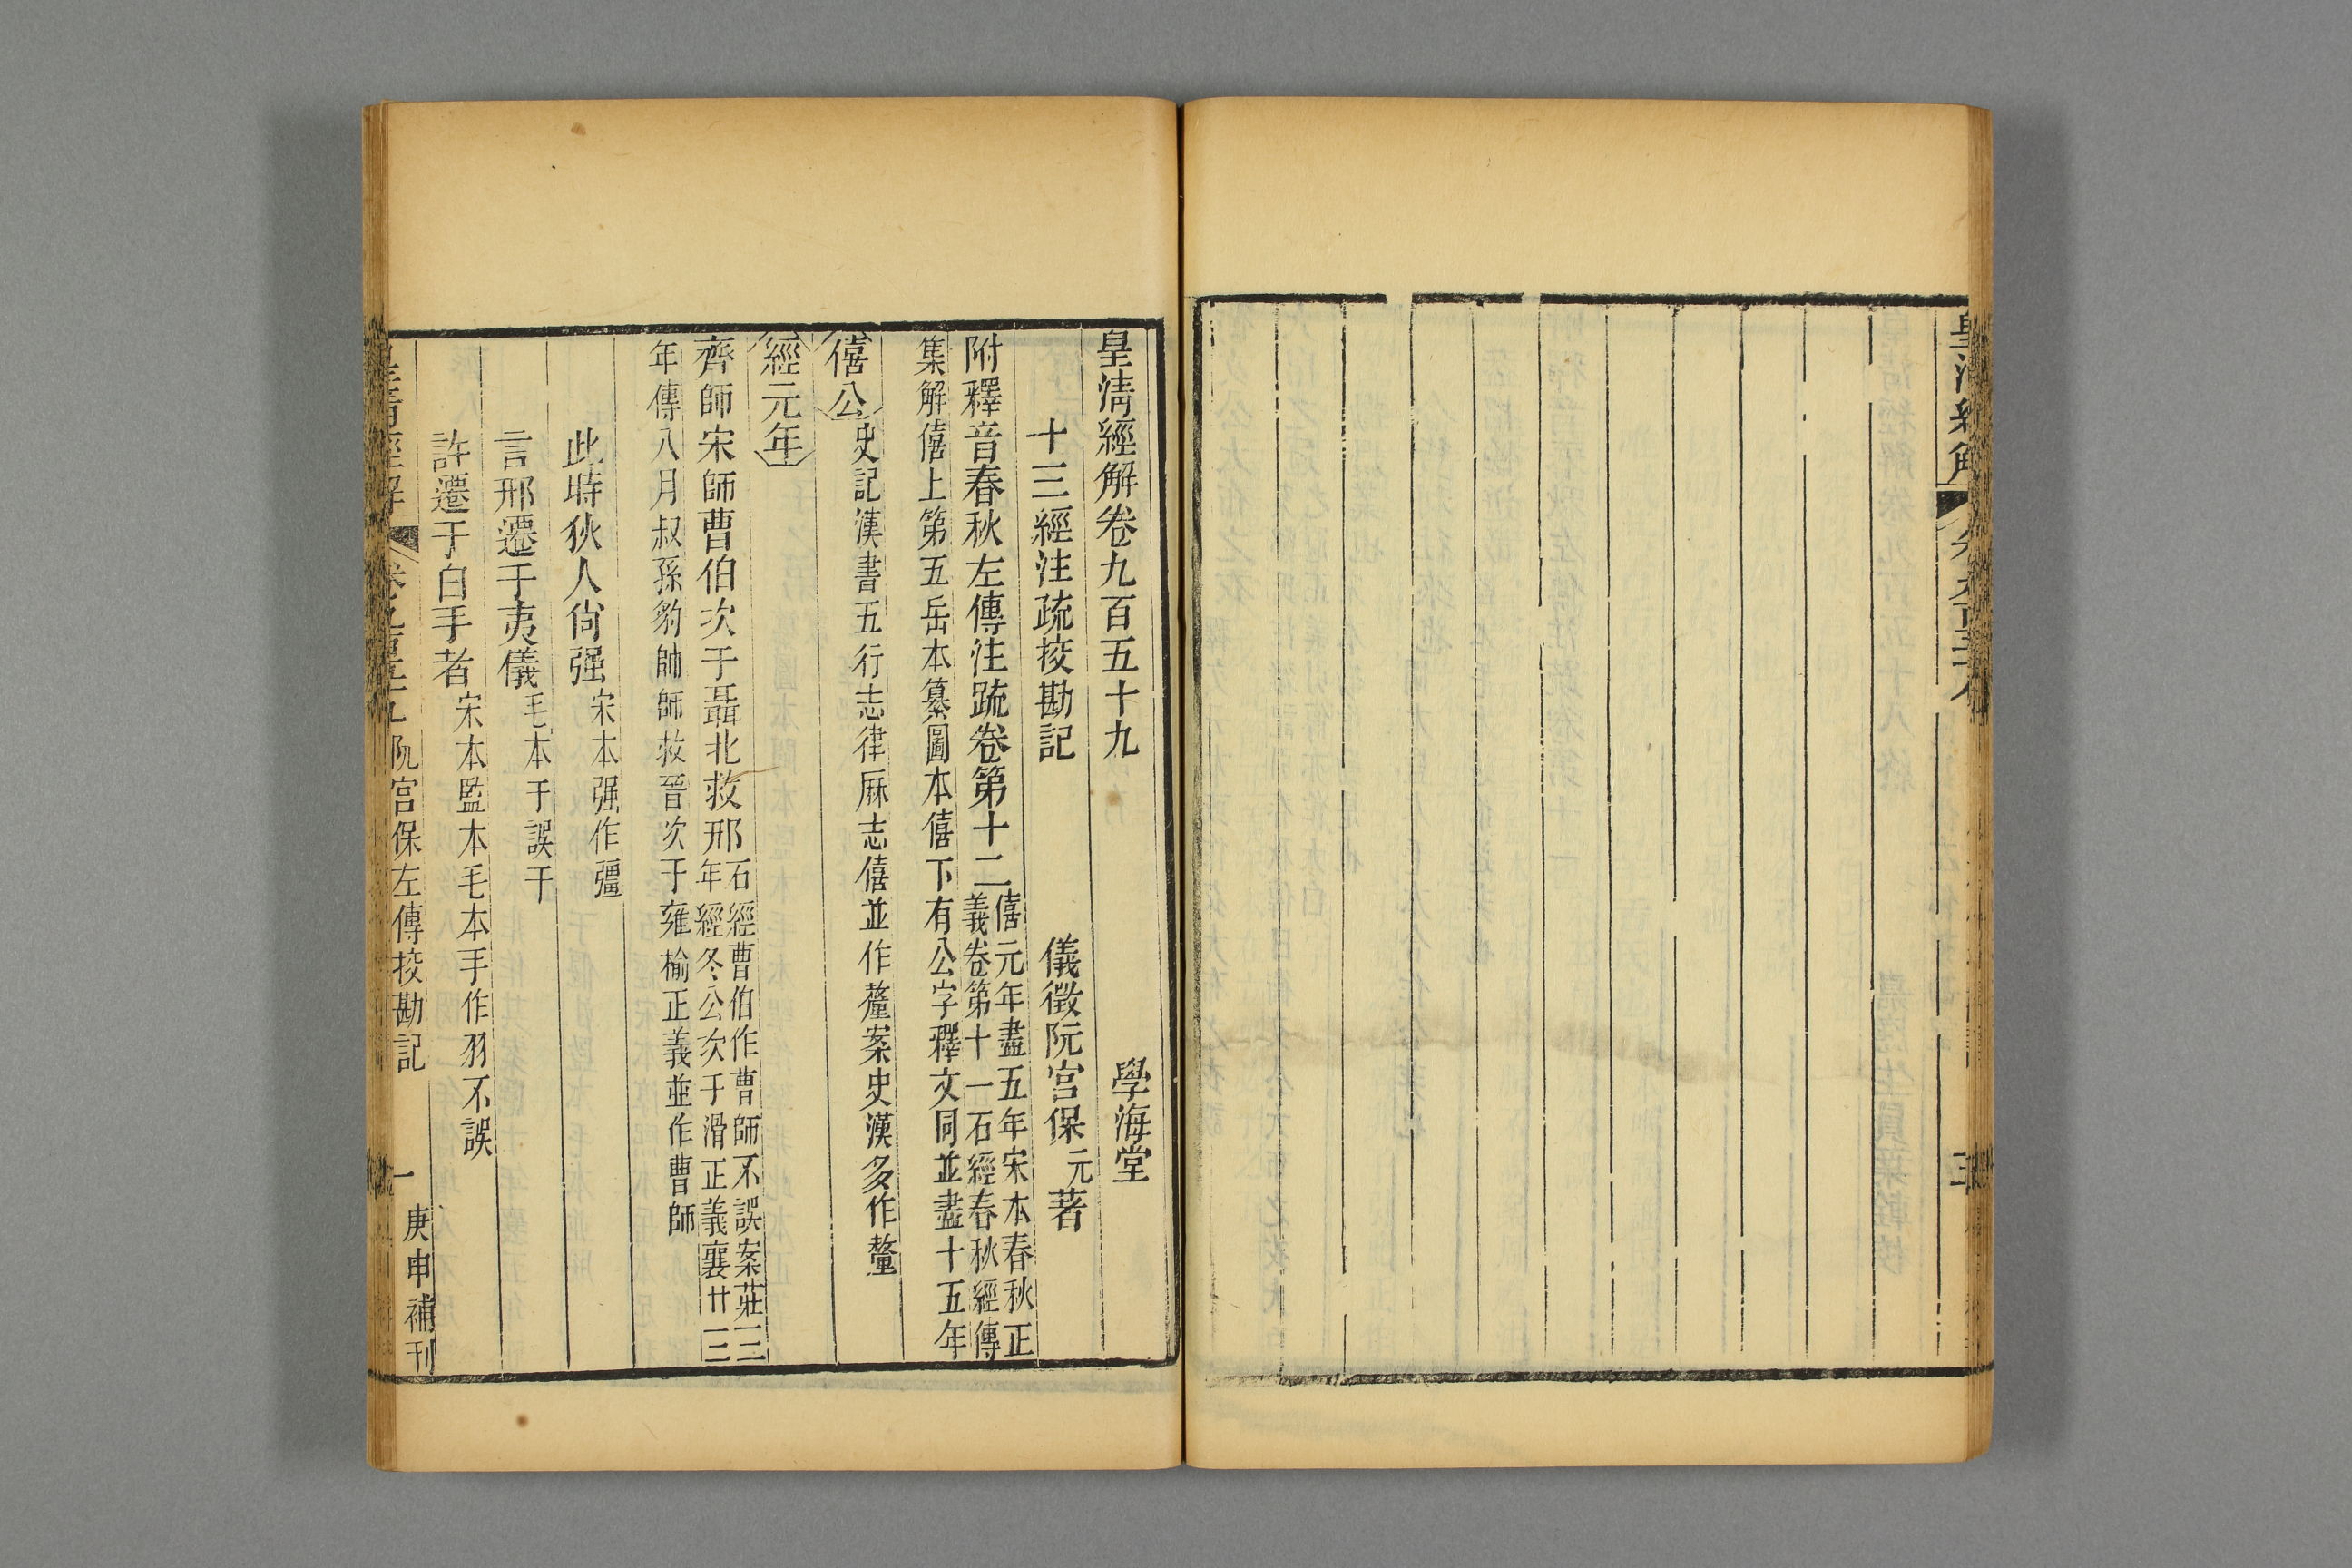 皇清經解
皇清經解卷九百五十九
學海堂
十三經注疏挍勘記
儀徵阮宮保元著
附釋音春秋左傳注疏卷第十二
僖元年盡五年宋本春秋正
義卷第十一石經春秋經傳
集解僖上第五岳本纂圖本僖下有公字釋文同並盡十五年
僖公
史記漢書五行志律厤志僖並作釐案史漢多作釐
經元年
齊師宋師曹伯次于聶北救邢
石經曹伯作曹師不誤案莊三
年經冬公次于滑正義襄廿三
年傳八月叔孫豹帥師救晉次于雍榆正義並作曹師
此時狄人尙强
宋本强作彊
言邢遷于夷儀
毛本于誤干
許遷于白手者
宋本監本毛本手作羽不誤
卷九百五十九
阮宮保左傳挍勘記
一
庚申補刊